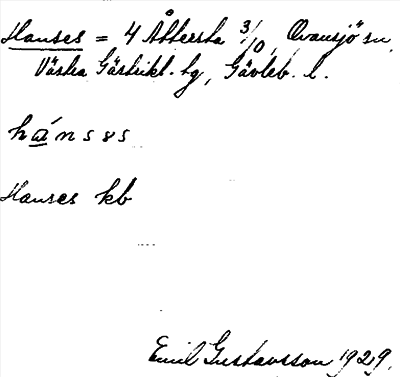 Hanses = 4 Åttersta 3/10, Ovansjö sn,
Västra Gästrikl. tg, Gävleb. l.
hánsəs
Hanses kb
Emil Gustavsson 1929.